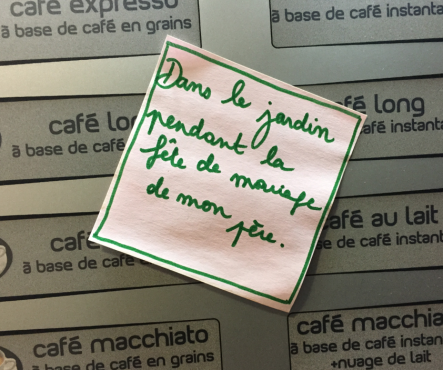 café expresso
à base de café en grains
à base de café instanta
café lo
à base de café
fé long
afé instanta
café
à base de café
afé au lait
e de café instant
café macchiato
à base de café en grains
café macchia
à base de café instan
+nuage de lait
Dans le jardin
pendant la
fête de mariage
de mon père.